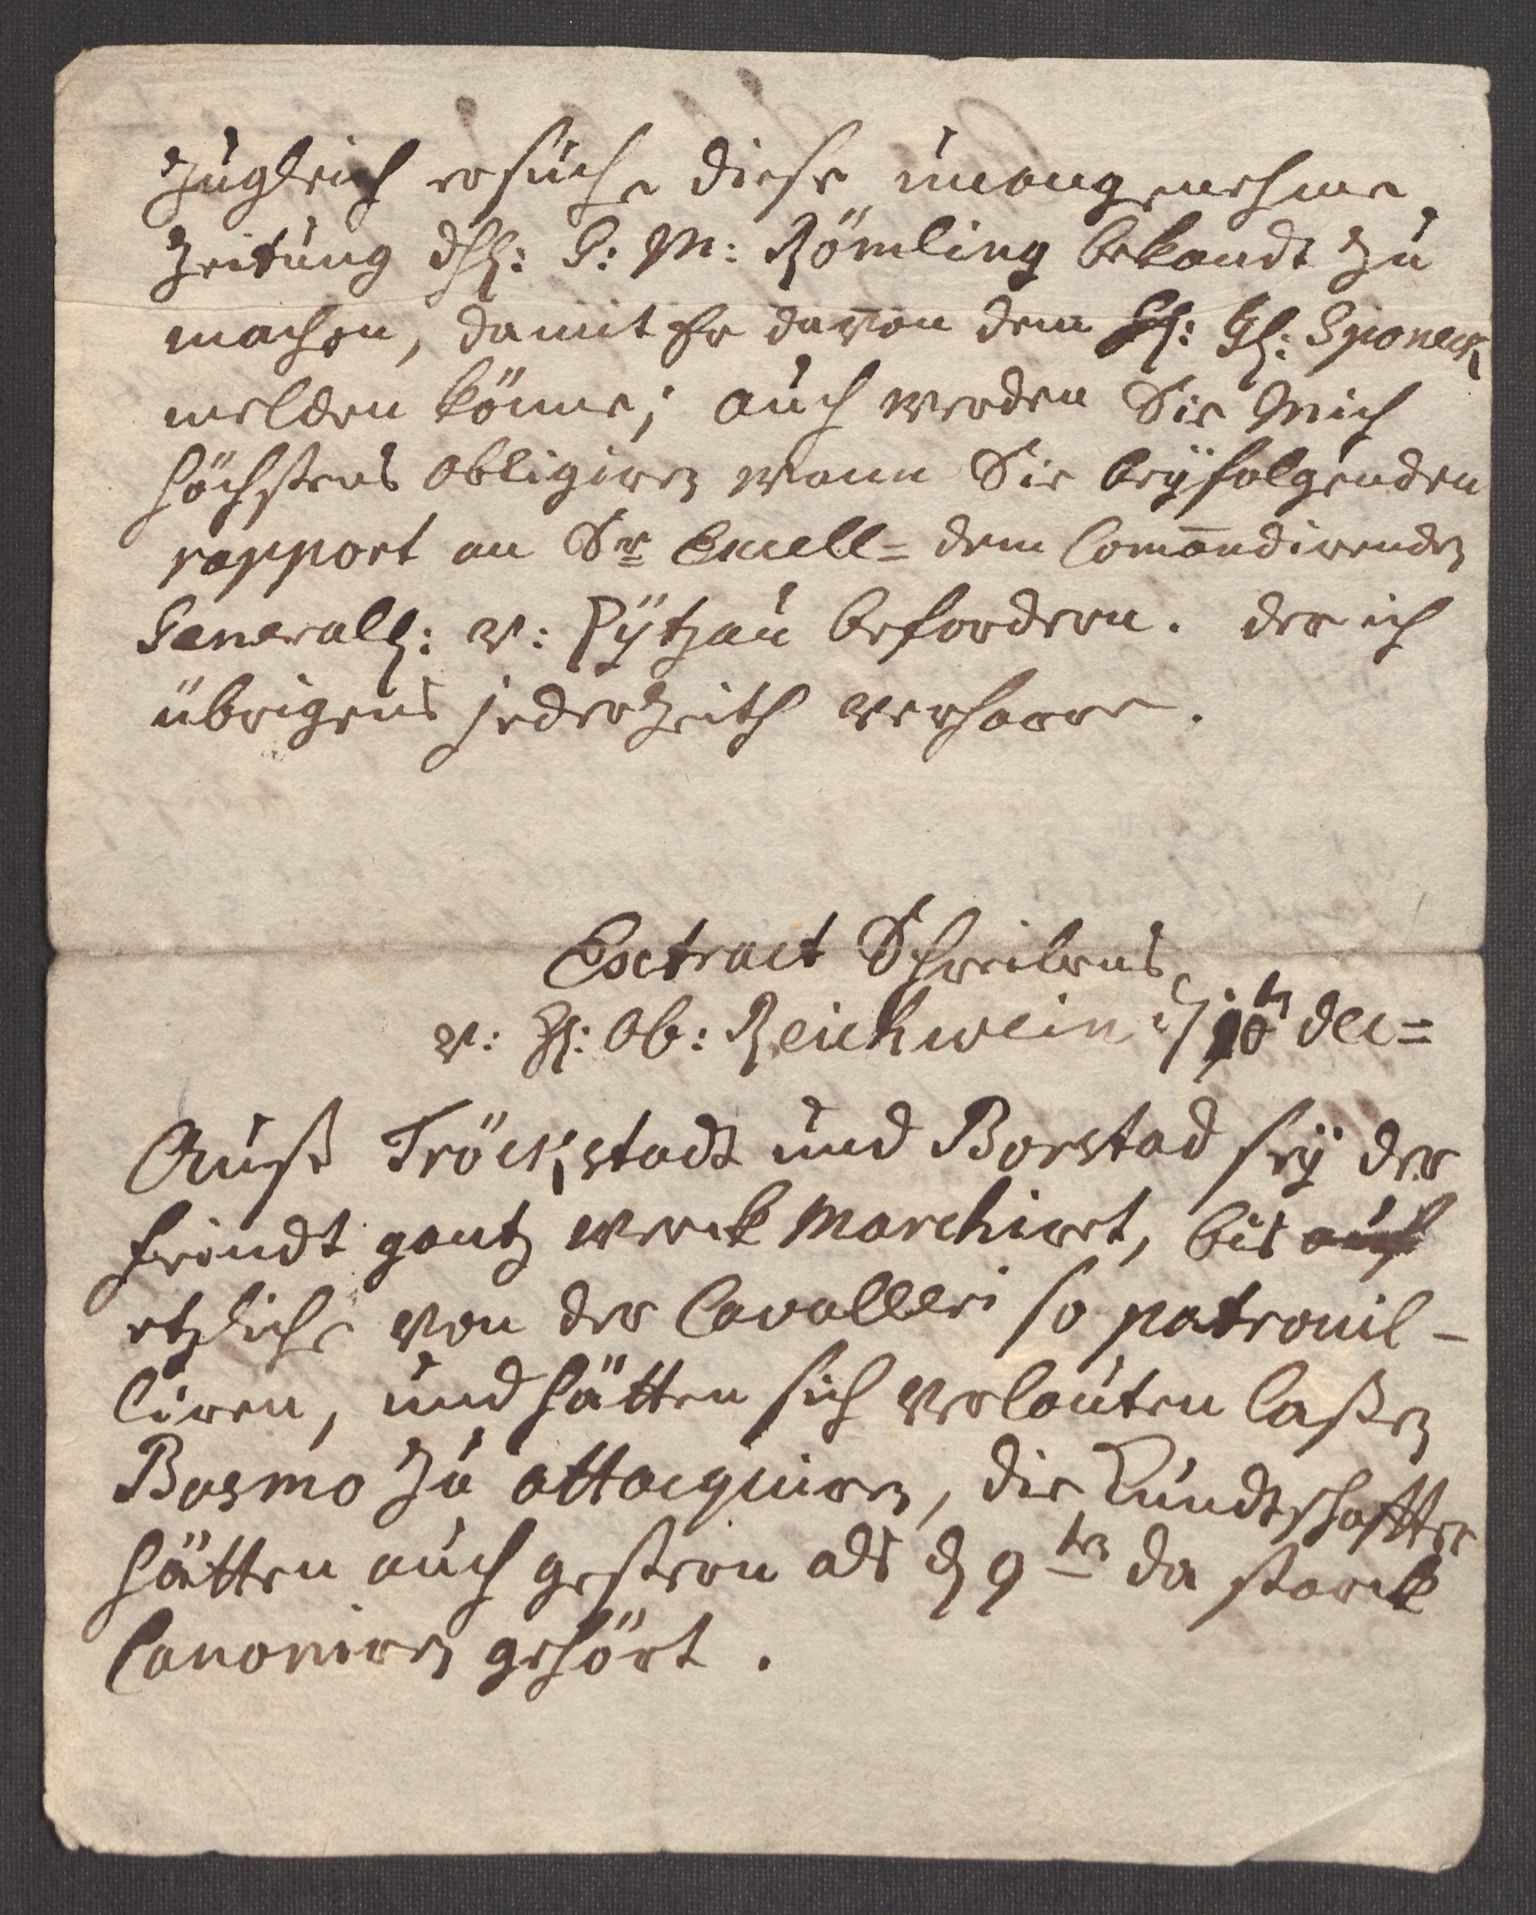 Zugleich ersuche diese unangenehme
Zeitung dhl: G: M: Römling bekandt zu
machen, damit Er davon dem Hl: Gl: Sponeck
melden könne; auch werden Sie Mich
höchstens obligiren wann Sie beÿfolgenden
rapport an Sr Excell= dem Com̄andirenden
Generall: v: Lÿtzau befordern. der ich
übrigens jederzeith verharre.
Extract Schreibens
v: Hl: Ob: Reichwein 10ten dec=
Auß Tröckstadt und Borstad seÿ der
feindt gantz weck marchiret, bis auf
etzliche von der Cavalleri so patrouil-
liren, und hätten sich verlauten laßen
Basmo zu attacquiren, die Kundtschaffter
hätten auch gestern als d 9ten da starck
Canoniren gehört.